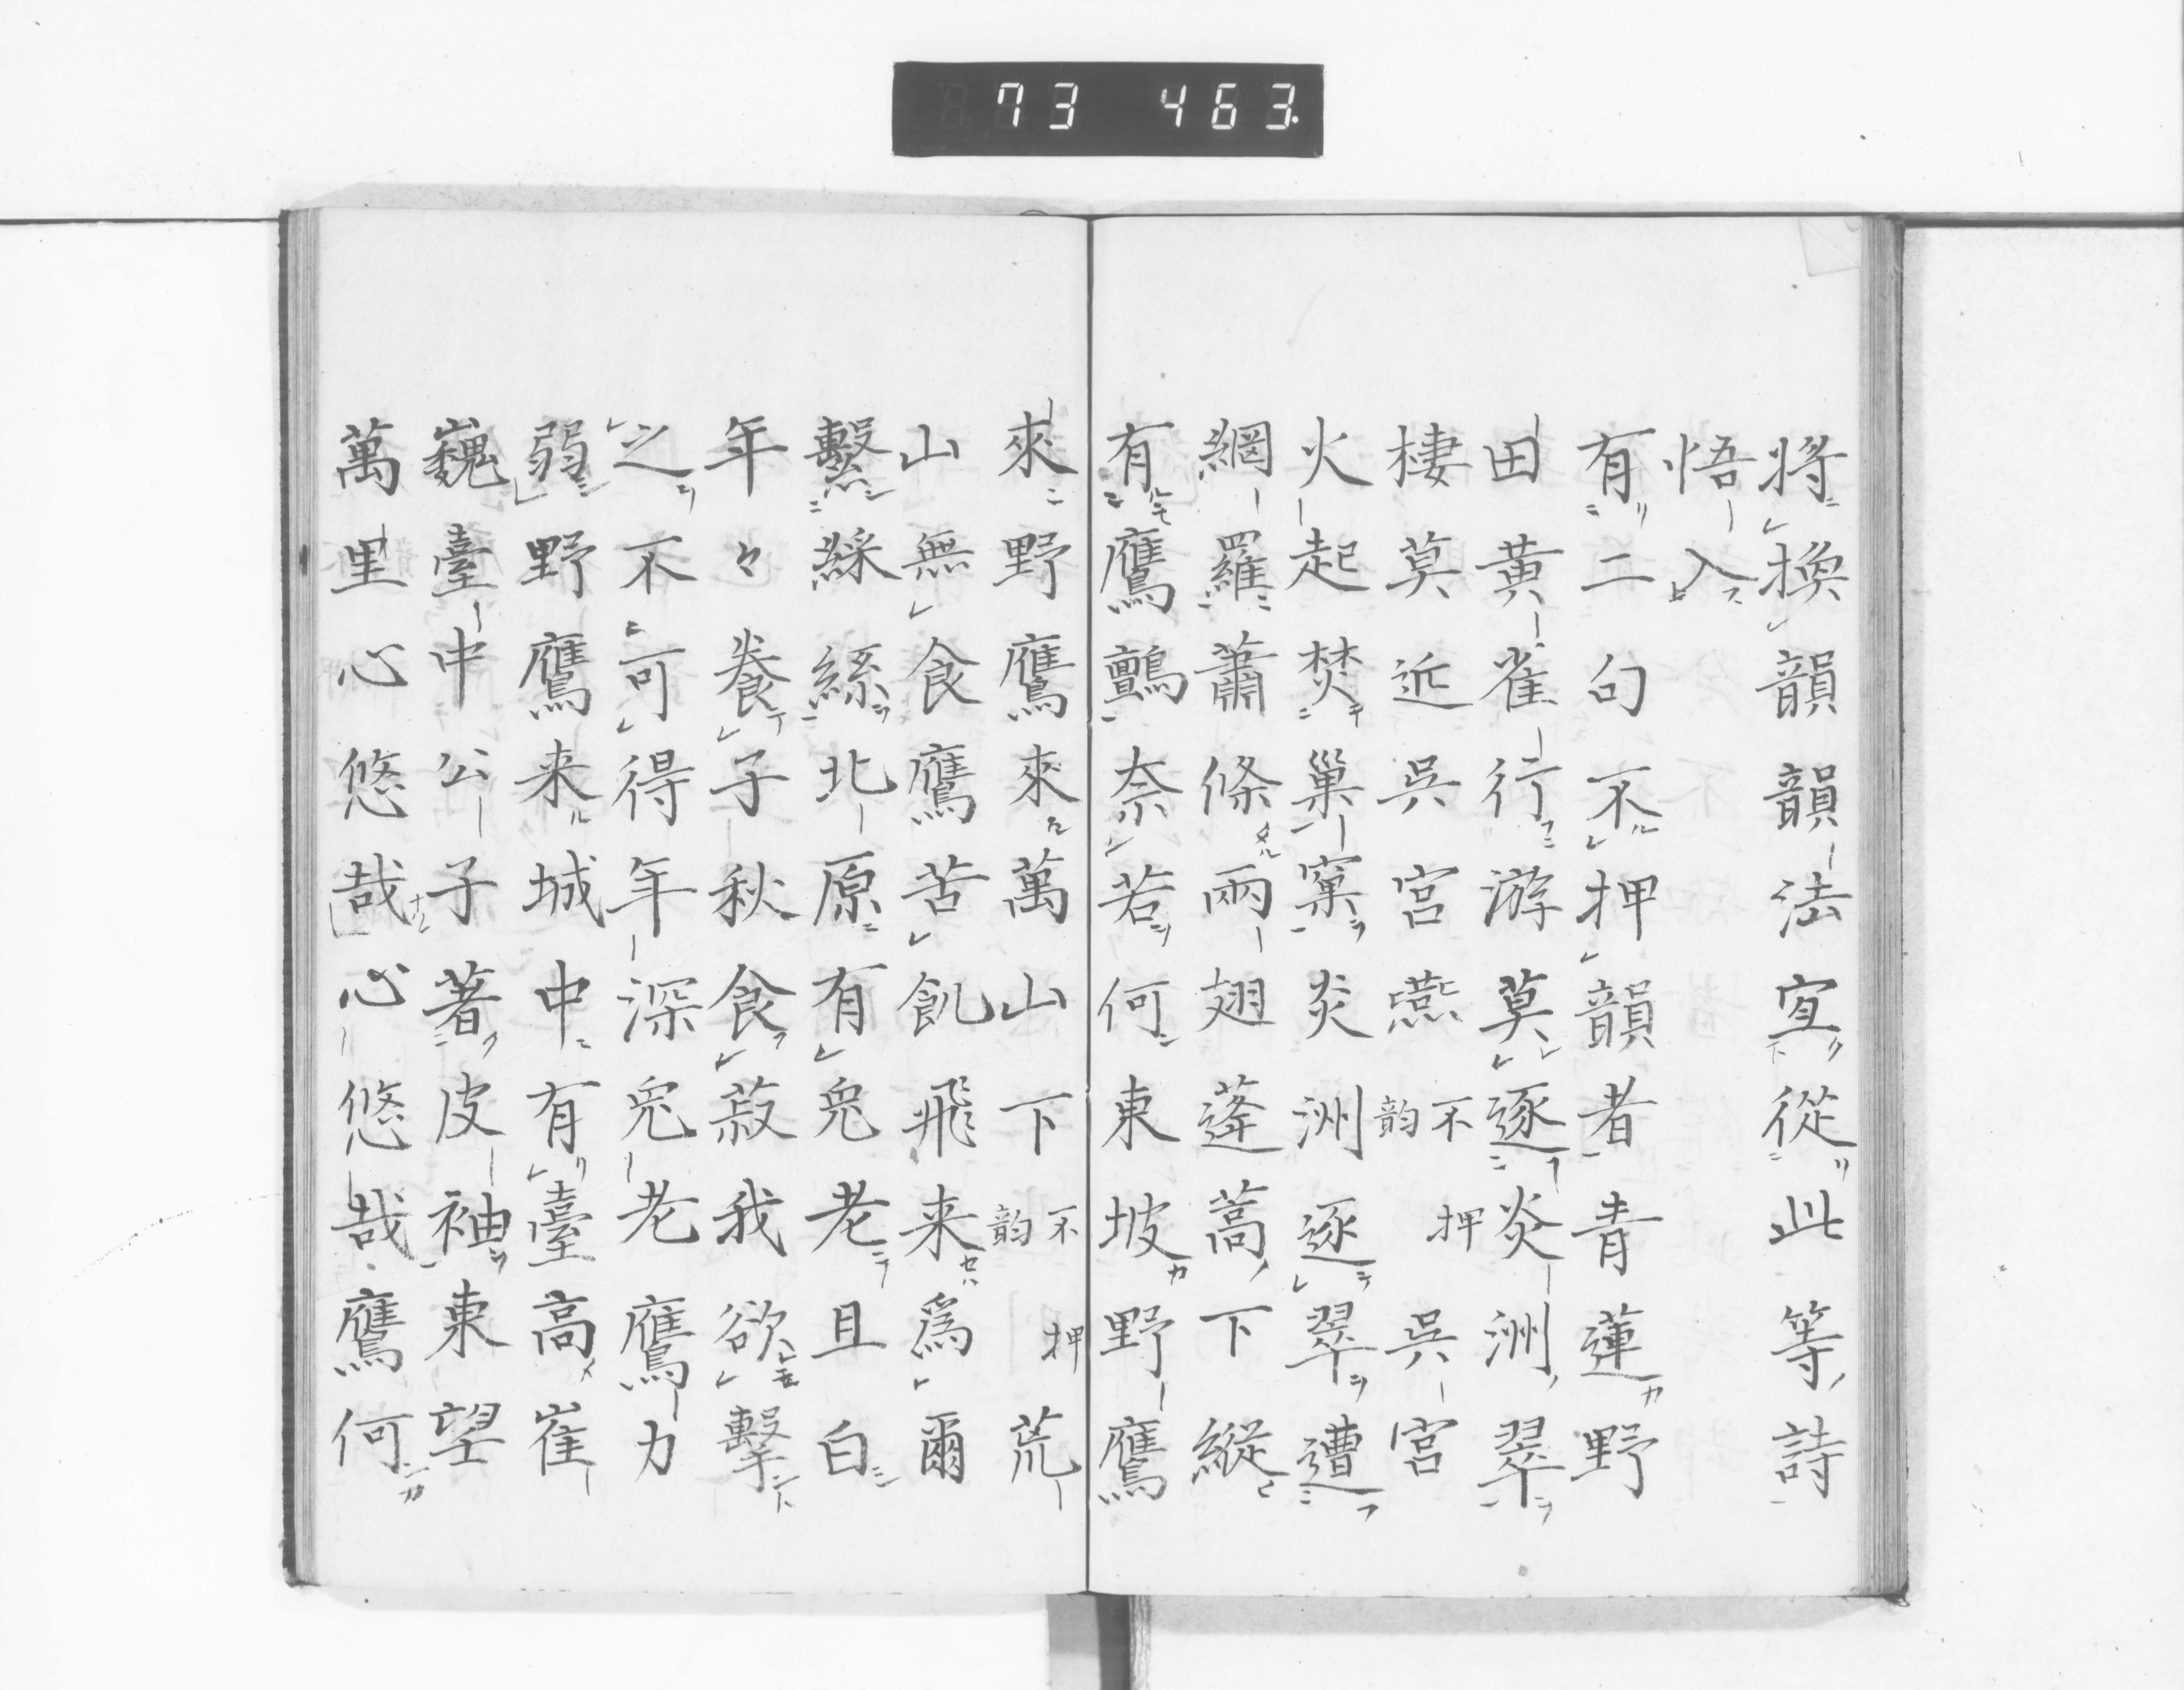 73 463.
將換韻韻法宜從此等詩
悟入
有二句不押韻者青蓮野
田黃雀行游莫逐炎洲翠
棲莫近吳宮燕不押韵吳宮
火起焚巢窠炎洲逐翠遭
網羅蕭條兩翅蓬蒿下縱
有鷹鸇奈若何東坡野鷹
來野鷹來萬山下不押韵荒
山無食鷹苦飢飛来為爾
繫綵絲北原有兎老且白
年々養子秋食菽我欲擊
之不可得年深兎老鷹力
弱野鷹来城中有臺高崔
巍臺中公子著皮袖東望
萬里心悠哉心悠哉鷹何